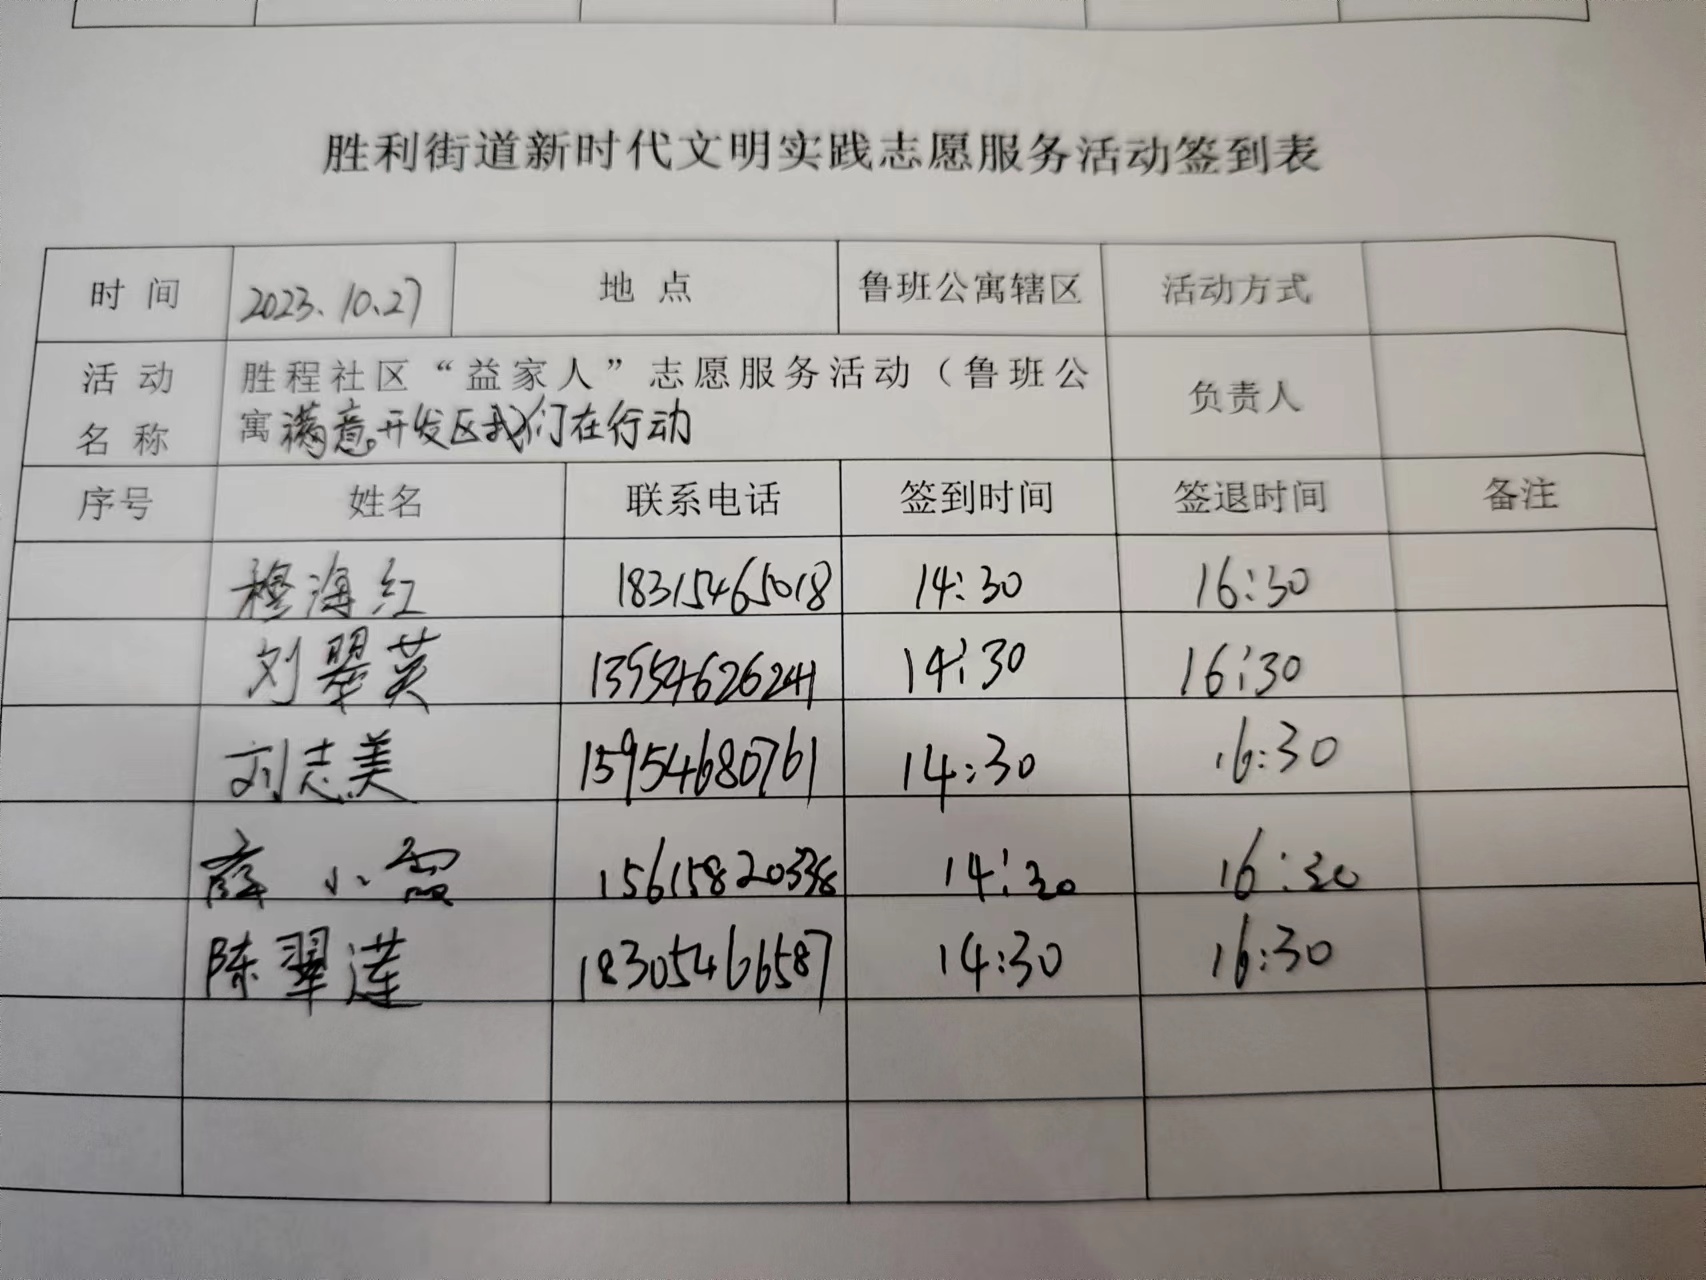 胜利街道新时代文明实践志愿服务活动签到表
时 间 2023.10.27 地 点 鲁班公寓辖区 活动方式
活 动 名 称 胜程社区“益家人”志愿服务活动（鲁班公 负责人
寓满意开发区我们在行动
序号 姓名 联系电话 签到时间 签退时间 备注
穆海红 18315465018 14:30 16:30
刘翠英 13954626241 14:30 16:30
刘志美 15954680761 14:30 16:30
薛小霞 15615820338 14:30 16:30
陈翠莲 18305466587 14:30 16:30